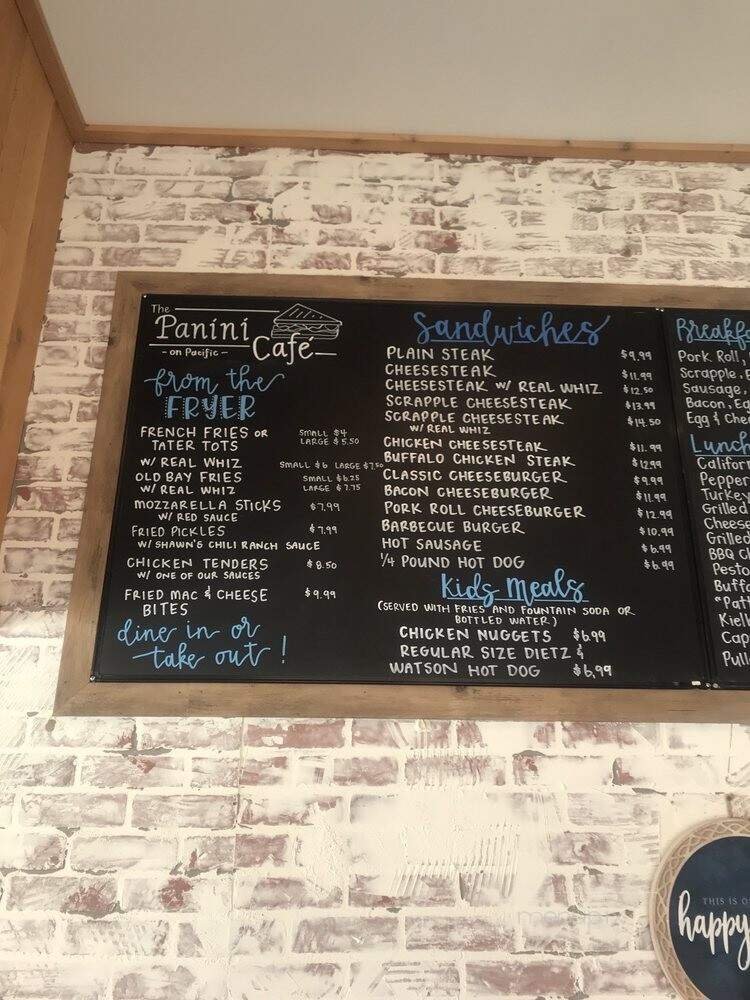 The
Panini
- on Pacific - Café
from the
FRYER
FRENCH FRIES OR SMALL $4
TATER TOTS LARGE $5.50
W/ REAL WHIZ SMALL $6 LARGE $7.50
OLD BAY FRIES SMALL $6.25
W/ REAL WHIZ LARGE $7.75
MOZZARELLA STICKS $7.99
W/ RED SAUCE
FRIED PICKLES $7.99
W/ SHAWN'S CHILI RANCH SAUCE
CHICKEN TENDERS $8.50
W/ ONE OF OUR SAUCES
FRIED MAC & CHEESE $9.99
BITES
dine in or
take out!
Sandwiches
PLAIN STEAK $9.99
CHEESESTEAK $11.99
CHEESESTEAK W/ REAL WHIZ $12.50
SCRAPPLE CHEESESTEAK $13.99
SCRAPPLE CHEESESTEAK $14.50
W/ REAL WHIZ
CHICKEN CHEESESTEAK $11.99
BUFFALO CHICKEN STEAK $12.99
CLASSIC CHEESEBURGER $9.99
BACON CHEESEBURGER $11.99
PORK ROLL CHEESEBURGER $12.99
BARBECUE BURGER $10.99
HOT SAUSAGE $6.99
1/4 POUND HOT DOG $6.99
Kids Meals
(SERVED WITH FRIES AND FOUNTAIN SODA OR
BOTTLED WATER)
CHICKEN NUGGETS $6.99
REGULAR SIZE DIETZ &
WATSON HOT DOG $6.99
Breakf
Pork Roll,
Scrapple, E
Sausage,
Bacon, Eg
Egg & Che
Lunch
Califor
Pepper
Turkey
Grilled
Chees
Grilled
BBQ Ch
Pesto
Buffa
"Patt
Kielb
Cap
Pull
THIS IS O
happy